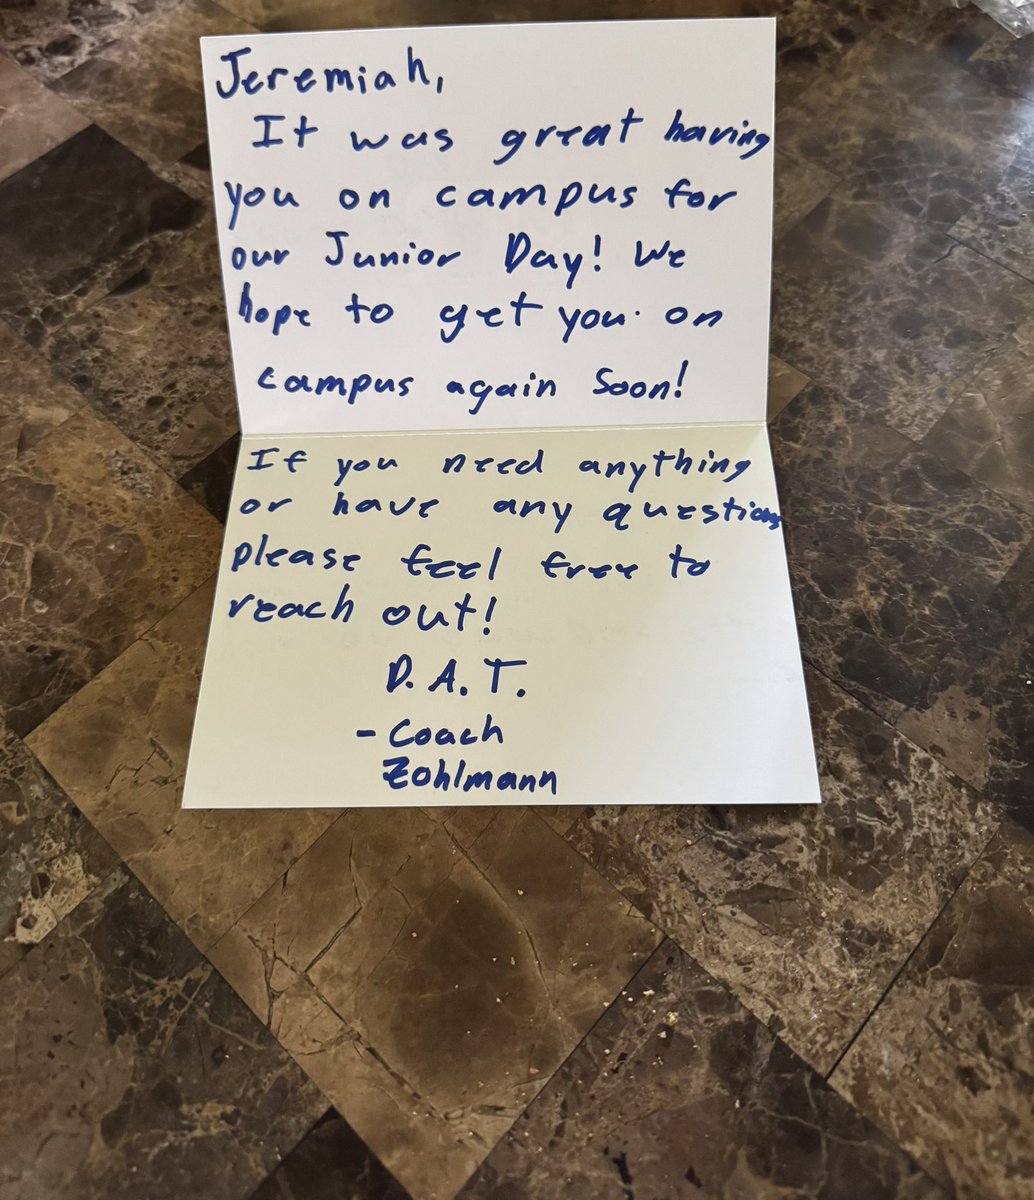 Jeremiah,
It was great having
you on campus for
our Junior Day! We
hope to get you on
campus again soon!
If you need anything
or have any questions
please feel free to
reach out!
D.A.T.
- Coach
Zohlmann